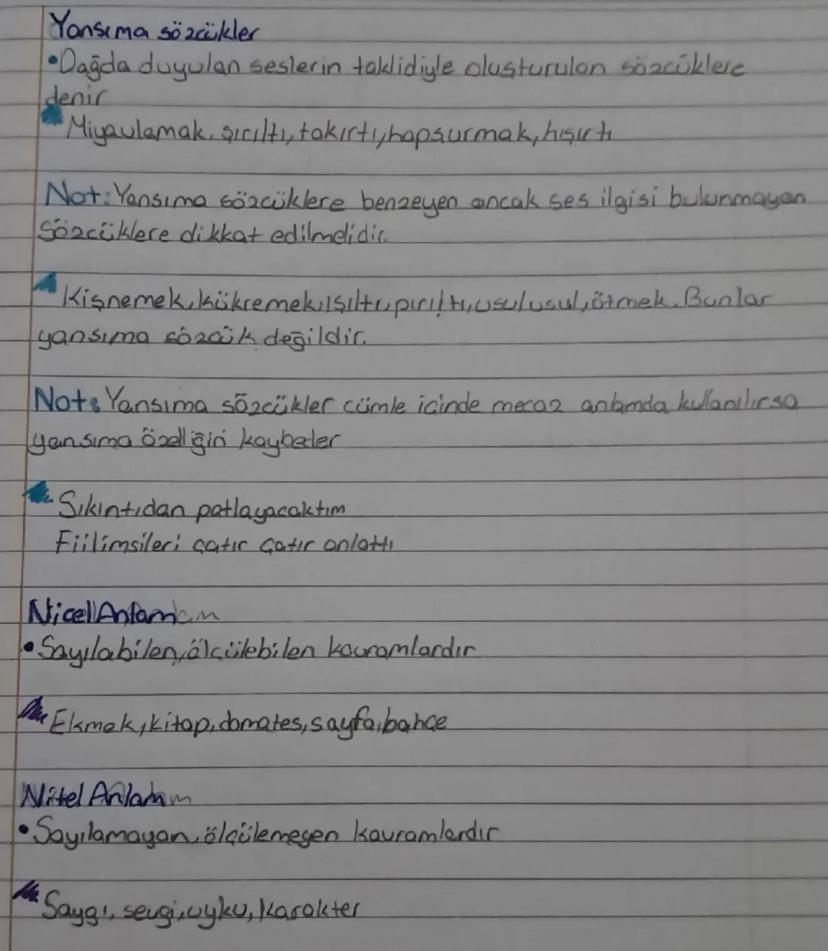 Yansıma sözcükler
•Dağda duyulan seslerin taklidiyle oluşturulan sözcüklere
denir
Miyavlamak, şırıltı, takırtı, hapşurmak, hışırtı
Not: Yansıma sözcüklere benzeyen ancak ses ilgisi bulunmayan
sözcüklere dikkat edilmelidir.
Kişnemek, kükremek, ışıltı, pırıltı, usul usul, ötmek. Bunlar
yansıma sözcük değildir.
Not: Yansıma sözcükler cümle içinde mecaz anlamda kullanılırsa
yansıma özelliğini kaybeder
Sıkıntıdan patlayacaktım
Fiilimsileri çatır çatır anlattı
Nicel Anlam
• Sayılabilen, ölçülebilen kavramlardır
Ekmek, kitap, domates, sayfa, bahçe
Nitel Anlam
• Sayılamayan, ölçülemeyen kavramlardır
Saygı, sevgi, uyku, karakter